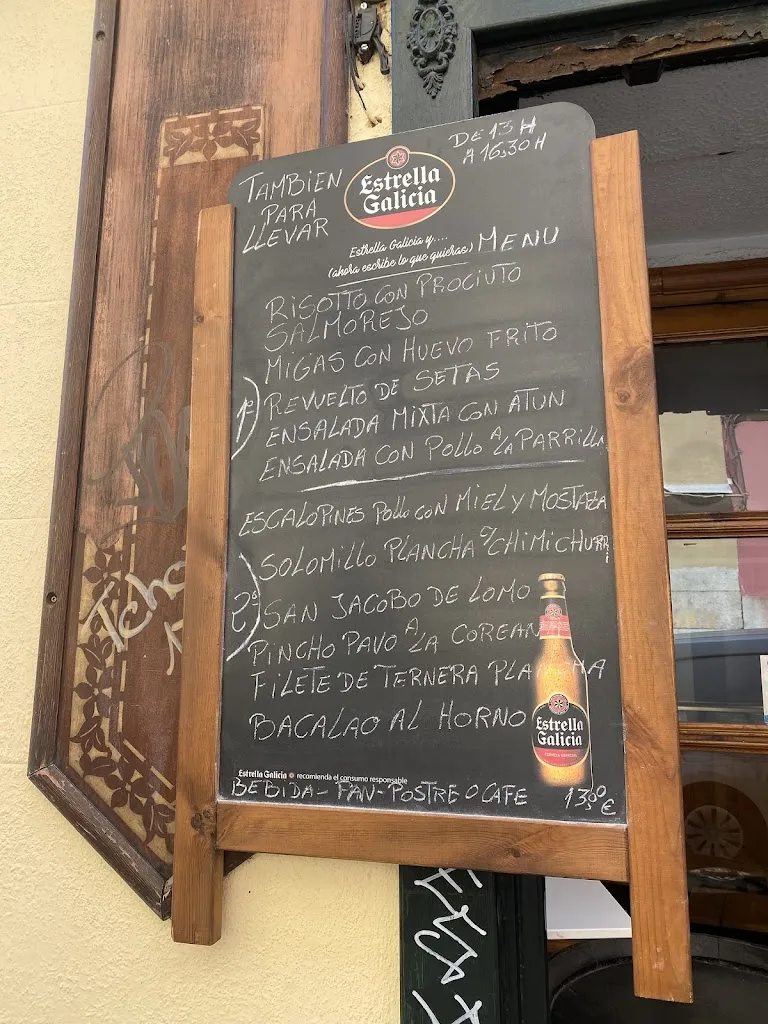 TAMBIEN
PARA
LLEVAR
Estrella
Galicia
DE 13 H
A 16,30 H
Estrella Galicia y....
(ahora escribe lo que quieras)
MENU
RISOTTO CON PROCIUTO
SALMOREJO
MIGAS CON HUEVO FRITO
1º
REVUELTO DE SETAS
ENSALADA MIXTA CON ATUN
ENSALADA CON POLLO A LA PARRILLA
ESCALOPINES POLLO CON MIEL Y MOSTAZA
SOLOMILLO PLANCHA O/CHIMICHURRI
2º
SAN JACOBO DE LOMO
PINCHO PAVO A LA COREANA
FILETE DE TERNERA PLANCHA
BACALAO AL HORNO
Estrella
Galicia
Estrella Galicia recomienda el consumo responsable
BEBIDA - PAN - POSTRE O CAFE
13,90 €